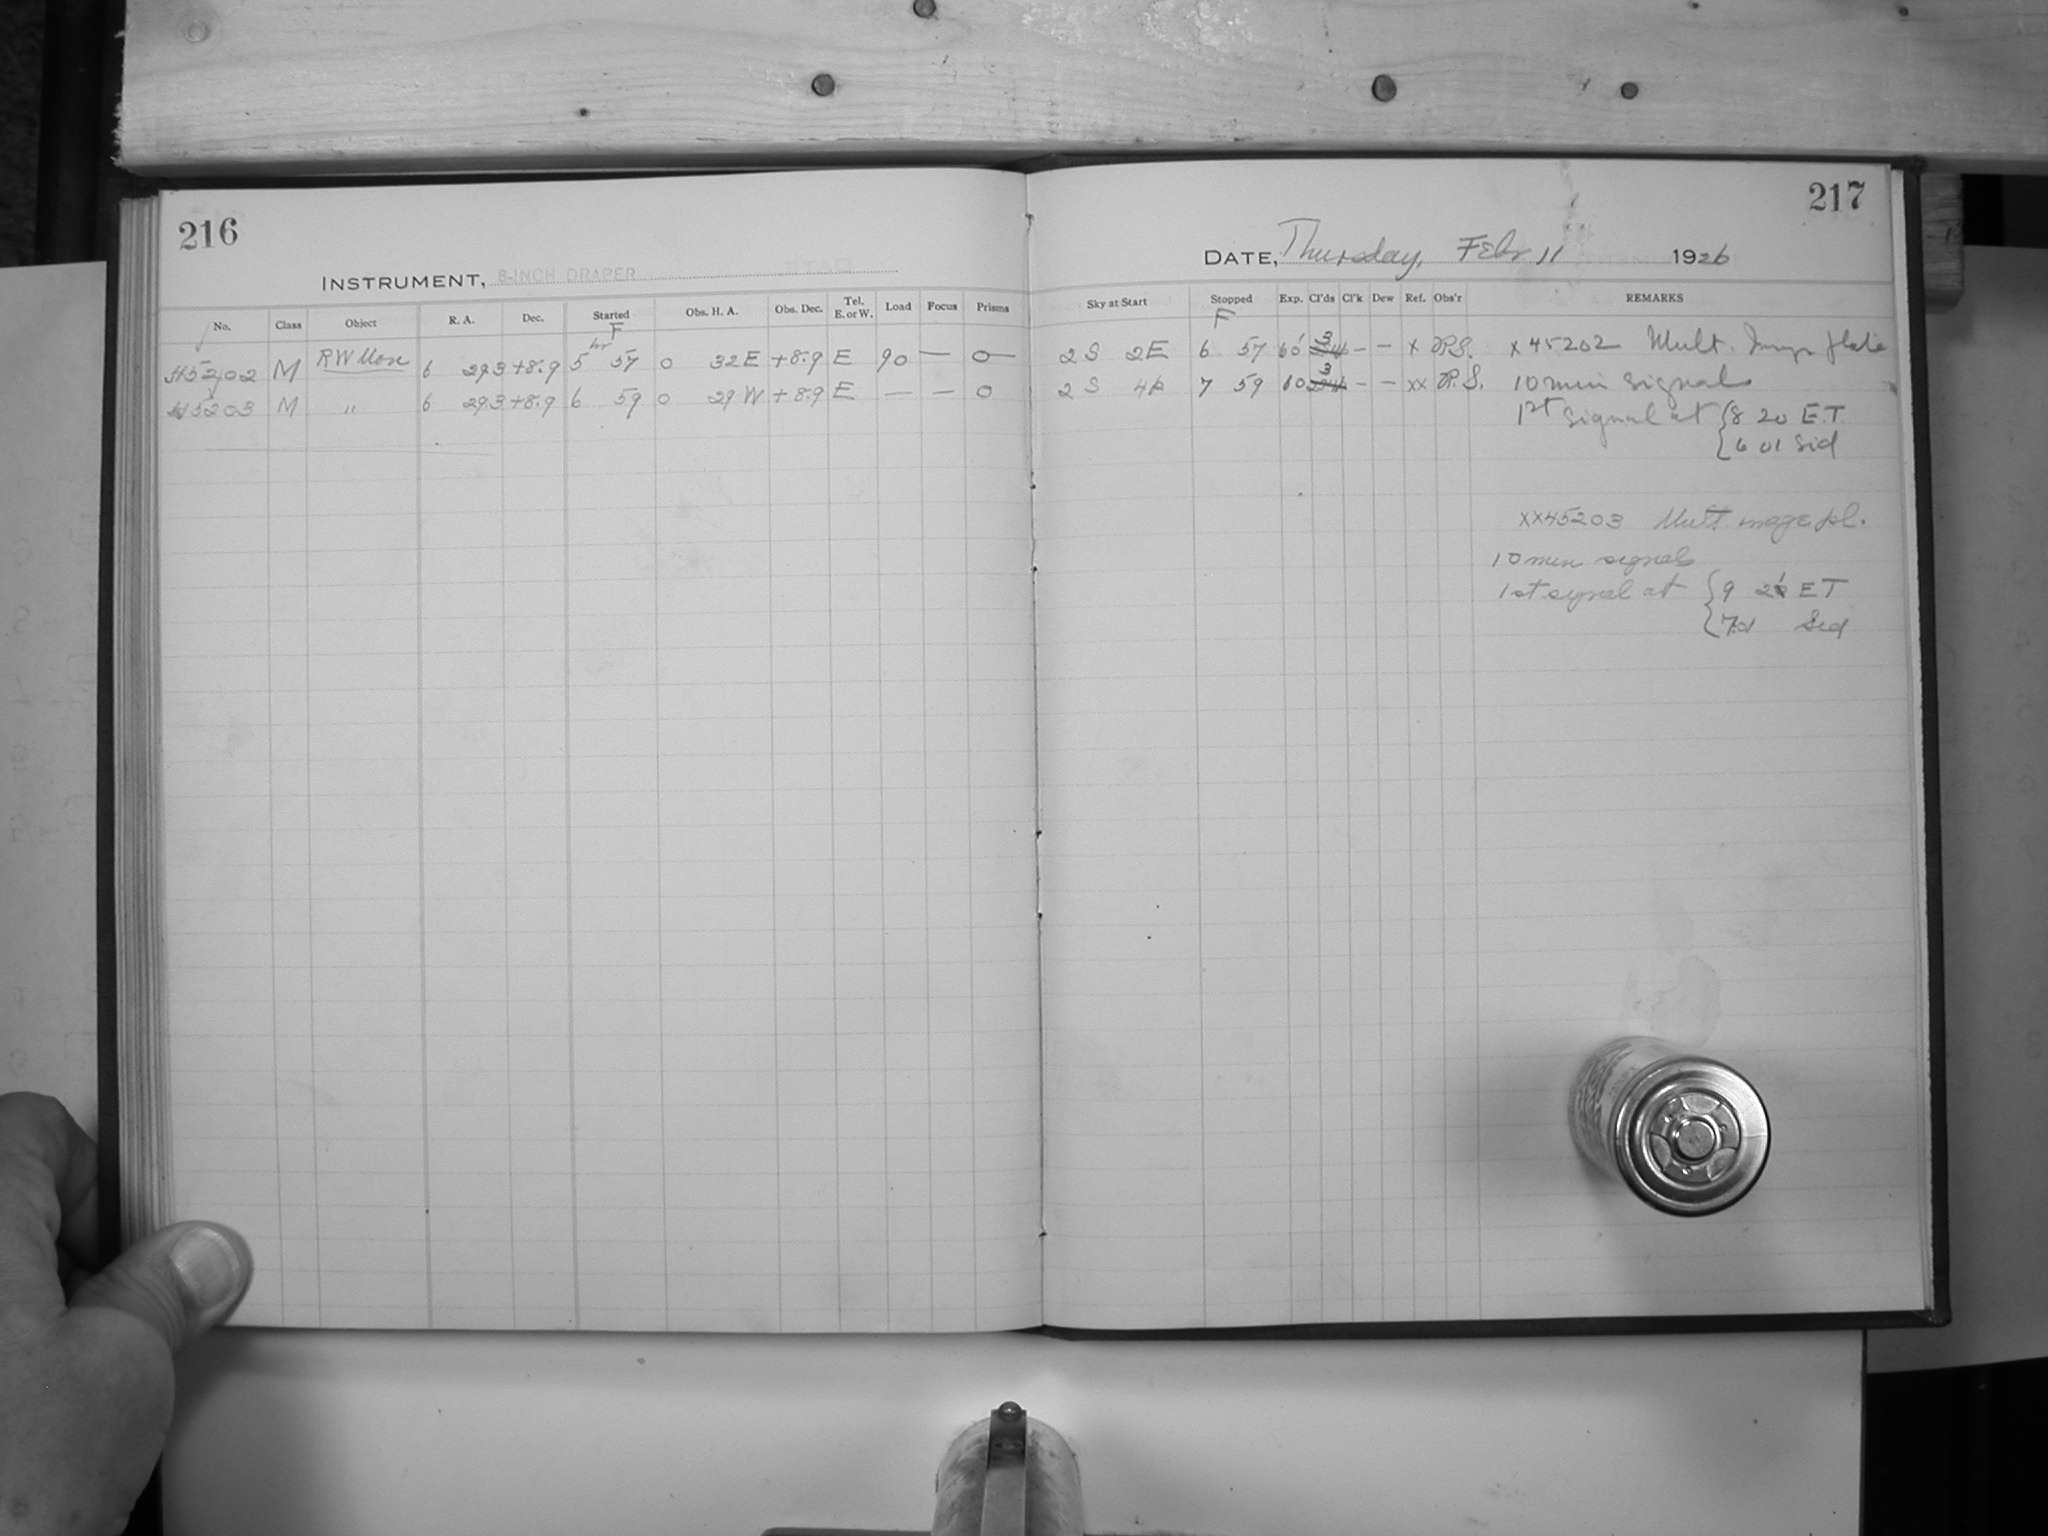 216
INSTRUMENT, 8-INCH DRAPER
No. Class Object R. A. Dec. Started Obs. H. A. Obs. Dec. Tel. E. or W. Load Focus Prisms
hr F
45202 M R W Mon 6 29.3 +8.9 5 57 0 32 E +8.9 E 90 — 0
45203 M " 6 29.3 +8.9 6 59 0 29 W +8.9 E — — 0
217
DATE, Thursday, Feb 11 1926
Sky at Start Stopped Exp. Cl'ds Cl'k Dew Ref. Obs'r REMARKS
F
2 S 2 E 6 57 60 3 – – x x 45202 Mult. Image plate
2 S 7 59 60 3 – – xx 10 min signals
1st signal at { 8 20 E.T.
{ 6 01 Sid
xx45203 Mult image pl.
10 min signals
1st signal at { 9 ET
{ 7 01 Sid